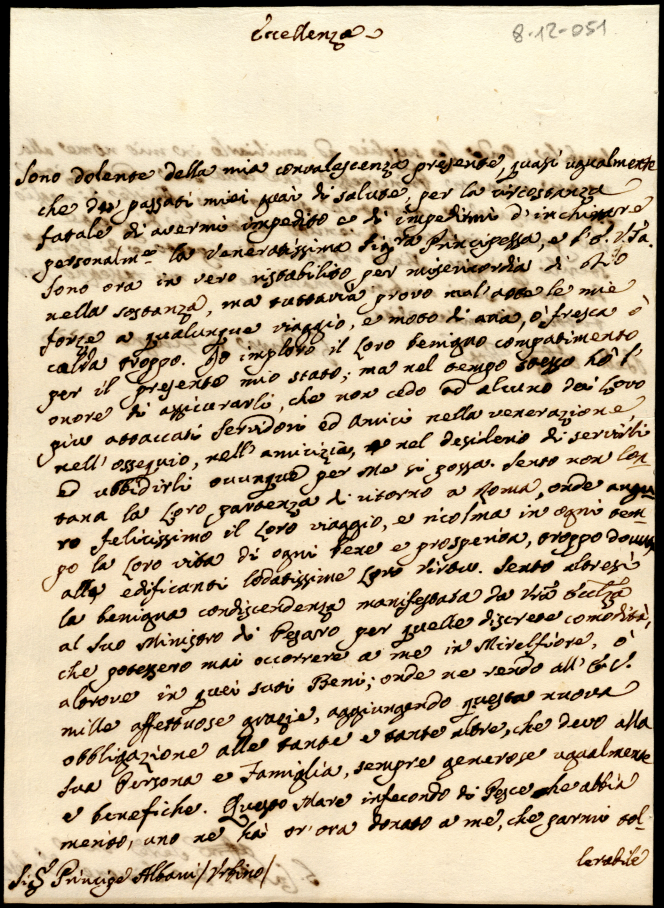 Eccellenza
8-12-051
Sono dolente della mia convalescenza presente, quasi ugualmente
che de passati miei guai di salute, per la circostanza
fatale di avermi impedito e di impedirmi d'inchinare
personalm.e la veneratissima Sig.ra Principessa, e
Sono ora in vero ristabilito per misericordia di Dio
nella sostanza, ma tuttavia provo mal'atte le mie
forze a qualunque viaggio, e moto di aria, o fresca o
calda troppo. Io imploro il Loro benigno compatimento
per il presente mio stato; ma nel tempo stesso hò l'
onore di assicurarli, che non cedo ad alcuno dei Loro
più attaccati Servidori ed Amici nella venerazione,
nell'ossequio, nell'amicizia, e nel desiderio di servirli
ed ubbidirli ovunque per me si possa. Sento non lon-
tana la Loro partenza di ritorno a Roma, onde augu-
ro felicissimo il Loro viaggio, e ricolma in ogni tem-
po la Loro vita di ogni bene e prosperità, troppo
alle edificanti lodatissime Loro virtù. Sento altresì
la benigna condiscendenza manifestata da
al Suo Ministro di Pesaro per quelle discrete comodità,
che potessero mai occorrere a me in Mirelfiore, ò
altrove in quei suoi Beni; onde ne rendo all'
mille affettuose grazie, aggiungendo questa nuova
obbligazione alle tante e tante altre, che devo alla
Sua Persona e Famiglia, sempre generose ugualmente
e benefiche. Questo Mare infecondo di Pesce che abbia
merito, uno ne hà or'ora donato a me, che parmi tol-
lerabile
Sig.r Principe Albani /Urbino/